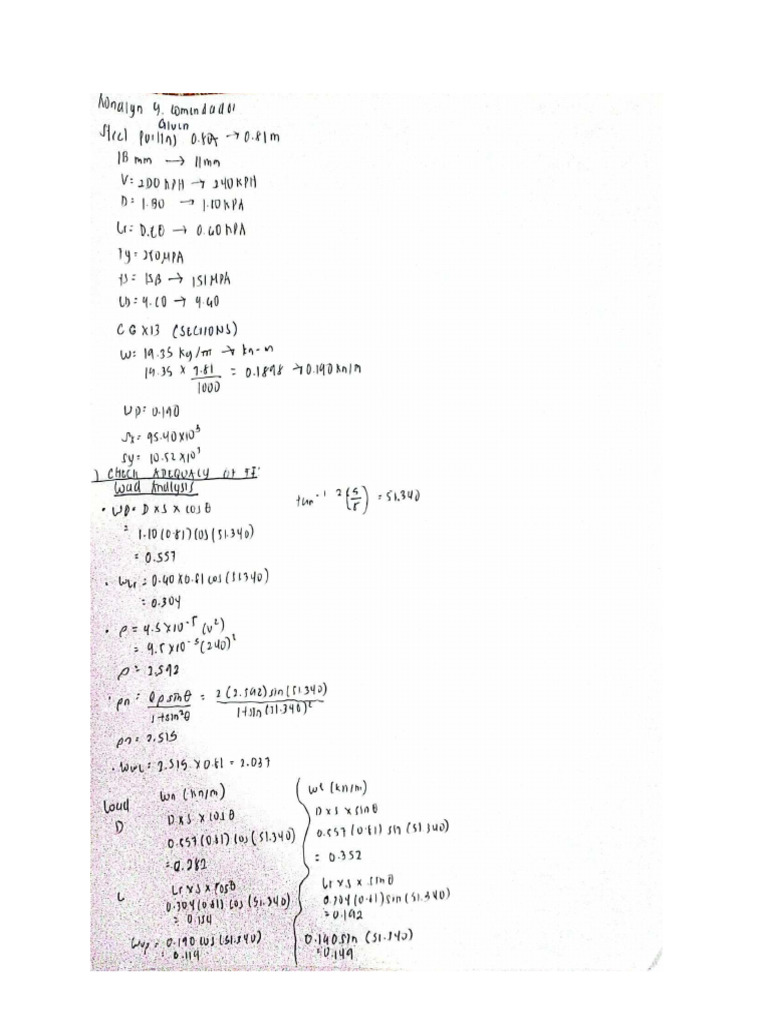 Ronalyn G. Comendador
Given
Steel purlins 0.80 → 0.81m
18 mm → 11mm
V = 200 KPH → 240 KPH
D = 1.80 → 1.10 KPA
Lr = 0.60 → 0.40 KPA
Fy = 250 MPA
fs = 158 → 151 MPA
4.60 → 4.40
C G X13 (SECTIONS)
W = 19.35 kg/m → kn-m
19.35 × 9.81 / 1000 = 0.1898 → 0.190 kn/m
WP = 0.190
Sx = 95.40×10³
Sy = 10.52×10³
) CHECK ADEQUACY OF
Load Analysis
tan⁻¹ 2(5/8) = 51.340
• WD = D × S × cos θ
= 1.10 (0.81) cos (51.340)
= 0.557
• WLr = 0.40 × 0.81 cos (51.340)
= 0.304
• P = 4.5×10⁻⁵ (V²)
= 4.5×10⁻⁵ (240)²
P = 2.592
• Pn = 2p sinθ / 1+sin²θ = 2(2.592) sin(51.340) / 1+sin(51.340)²
Pn = 2.515
• WWL = 2.515 × 0.81 = 2.037
Load Wn (kn/m) Wt (kn/m)
D D × S × cos θ D × S × sin θ
0.557 (0.81) cos (51.340) 0.557 (0.81) sin (51.340)
= 0.282 = 0.352
L Lr × S × cosθ Lr × S × sinθ
0.304 (0.81) cos (51.340) 0.304 (0.81) sin (51.340)
= 0.154 = 0.192
Wwp = 0.190 cos (51.340) 0.190 sin (51.340)
= 0.119 = 0.149